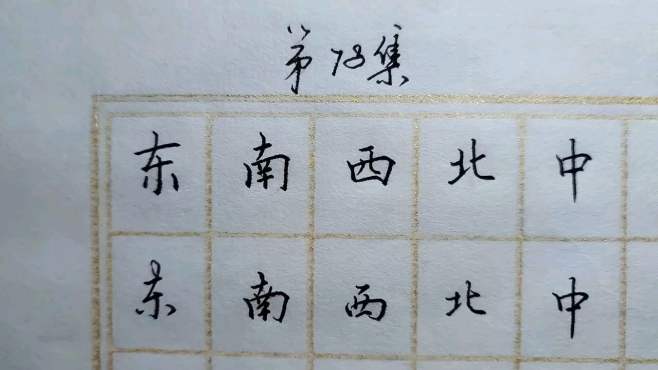 第73集
东南西北中
东南西北中